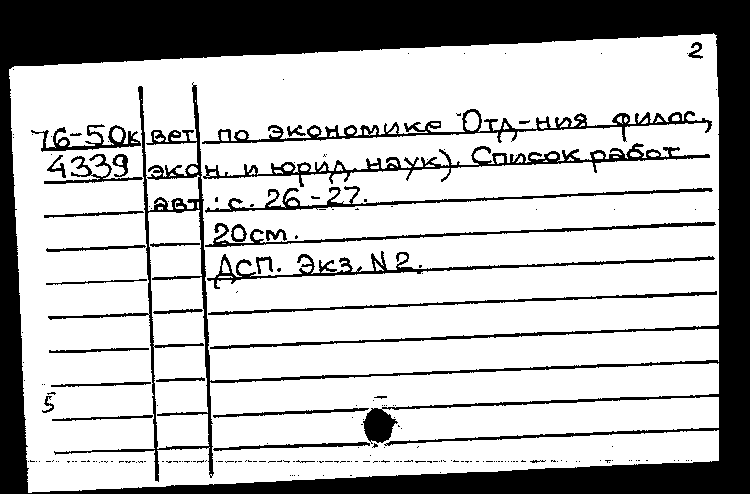 2
76-50к вет по экономике Отд-ния филос.,
4339 экон. и юрид. наук). Список работ
авт.: с. 26-27.
20см.
ДСП. Экз. N2.
5